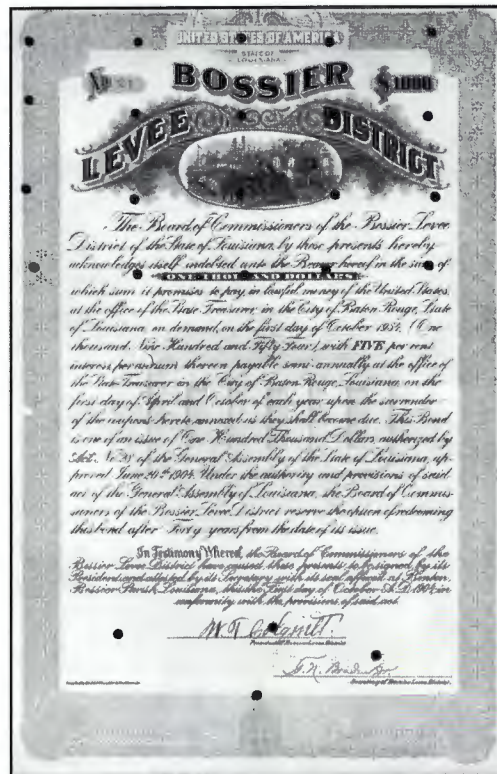 UNITED STATES OF AMERICA
STATE OF
LOUISIANA
BOSSIER
$1000
LEVEE DISTRICT
The Board of Commissioners of the Bossier Levee
District of the State of Louisiana, by these presents hereby
acknowledges itself indebted unto the Bearer hereof in the sum of
ONE THOUSAND DOLLARS
which sum it promises to pay, in lawful money of the United States,
at the office of the State Treasurer in the City of Baton Rouge, State
of Louisiana, on demand, on the first day of October 1954, (One
thousand, Nine Hundred and Fifty Four), with FIVE per cent
interest per annum thereon payable semi-annually at the office of
the State Treasurer in the City of Baton Rouge, Louisiana, on the
first day of April and October of each year upon the surrender
of the coupons hereto annexed as they shall become due. This Bond
is one of an issue of One Hundred Thousand Dollars, authorized by
Act No 38 of the General Assembly of the State of Louisiana, ap-
proved June 20th 1904. Under the authority and provisions of said
act of the General Assembly of Louisiana, the Board of Commis-
sioners of the Bossier Levee District reserve the option of redeeming
this bond after Forty years from the date of its issue.
In Testimony Whereof, the Board of Commissioners of the
Bossier Levee District have caused these presents to be signed by its
President and attested by its Secretary with its seal affixed at Benton,
Bossier Parish, Louisiana, this the First day of October A.D. 1904 in
conformity with the provisions of said act.
President of Bossier Levee District
Secretary of Bossier Levee District.